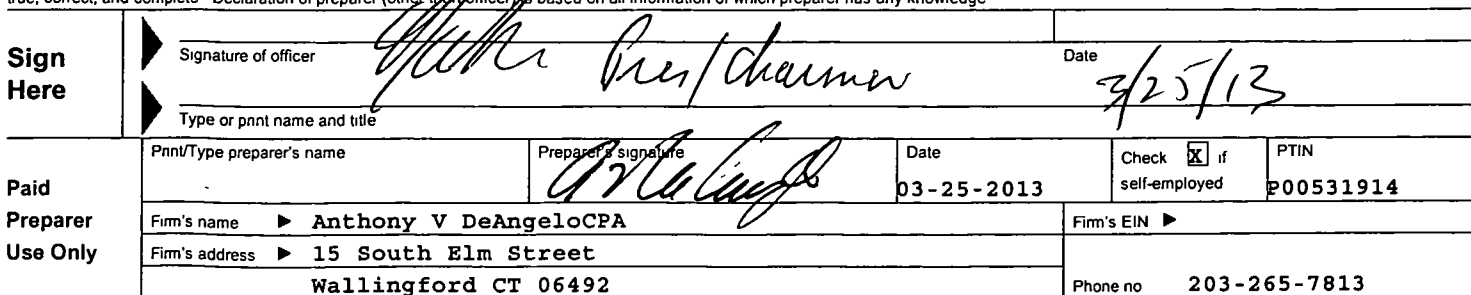 true, correct, and complete Declaration of preparer (other than officer) is based on all information of which preparer has any knowledge
Sign Here
Signature of officer
Pres/Chairman
Date
3/25/13
Type or print name and title
Paid Preparer Use Only
Print/Type preparer's name
Preparer's signature
Date
03-25-2013
Check X if self-employed
PTIN
P00531914
Firm's name ▶ Anthony V DeAngeloCPA
Firm's EIN ▶
Firm's address ▶ 15 South Elm Street
Wallingford CT 06492
Phone no 203-265-7813